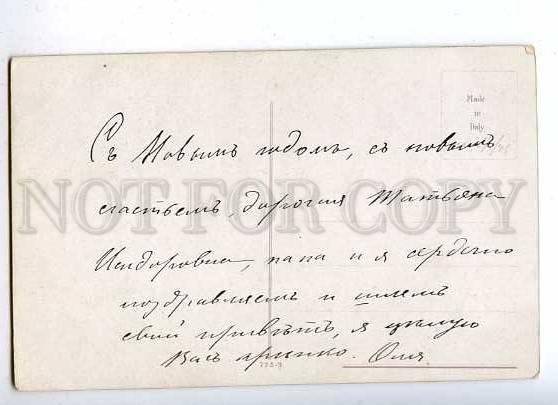 Made
in
Italy
Съ Новымъ годомъ, съ новымъ
счастьемъ, дорогая Татьяна
Исидоровна, папа и я сердечно
поздравляемъ и шлемъ
свой привѣтъ, я цѣлую
Васъ крѣпко. Оля
NOT FOR COPY